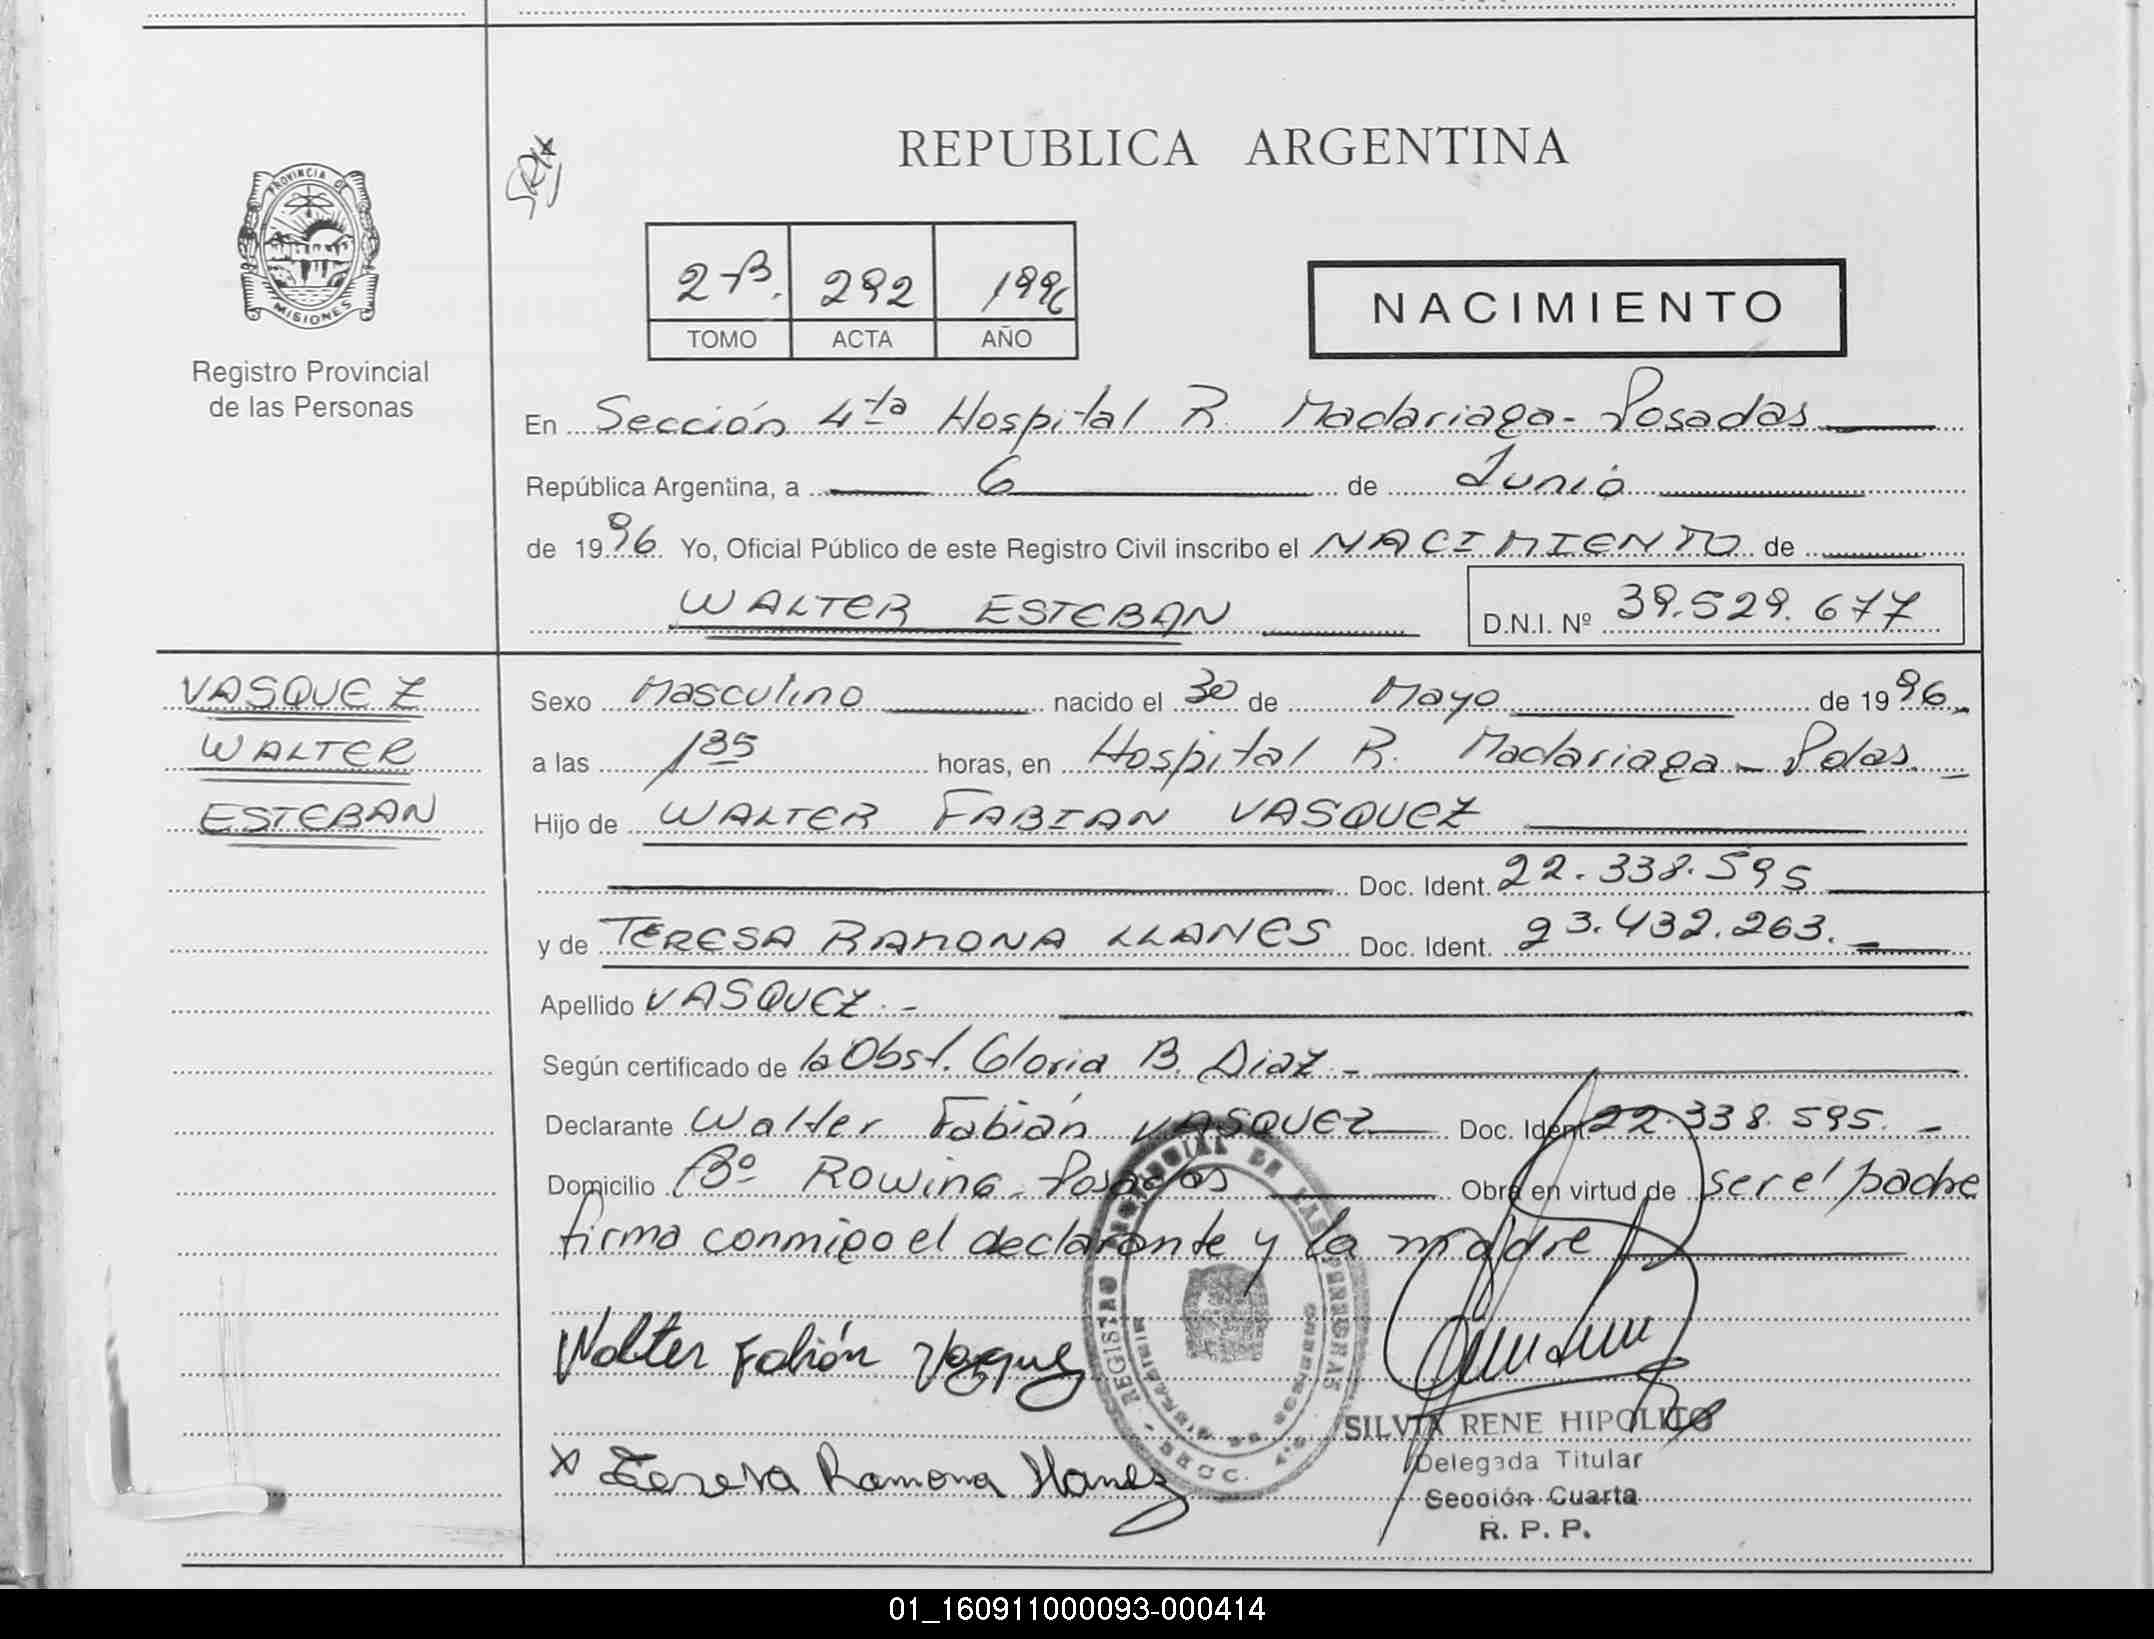 REPUBLICA ARGENTINA
PROVINCIA DE MISIONES
Registro Provincial
de las Personas
2-B. 292 1996
TOMO ACTA AÑO
NACIMIENTO
En Sección 4ta Hospital R. Madariaga - Posadas
República Argentina, a 6 de Junio
de 1996 Yo, Oficial Público de este Registro Civil inscribo el NACIMIENTO de
WALTER ESTEBAN D.N.I. Nº 39.529.677
VASQUEZ
WALTER
ESTEBAN
Sexo Masculino nacido el 30 de Mayo de 1996.
a las 1 35 horas, en Hospital R. Madariaga - Pdas.
Hijo de WALTER FABIAN VASQUEZ
Doc. Ident. 22.338.595
y de TERESA RAMONA LLANES Doc. Ident. 23.432.263.
Apellido VASQUEZ. -
Según certificado de la Obst. Gloria B. Diaz. -
Declarante Walter Fabián VASQUEZ Doc. Ident. 22.338.595. -
Domicilio Bº ROWING - Posadas Obra en virtud de ser el padre
firma conmigo el declarante y la madre
Walter Fabián Vasquez
x Teresa Ramona Llanes
REGISTRO PROVINCIAL DE LAS PERSONAS
SILVIA RENE HIPOLITO
Delegada Titular
Sección Cuarta
R. P. P.
01_160911000093-000414